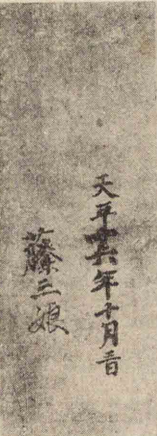 天平十六年十月三日
藤三娘